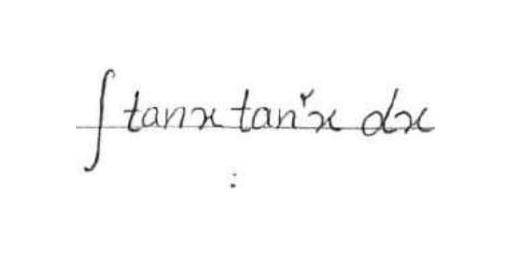 ∫ tanx tan²x dx
: